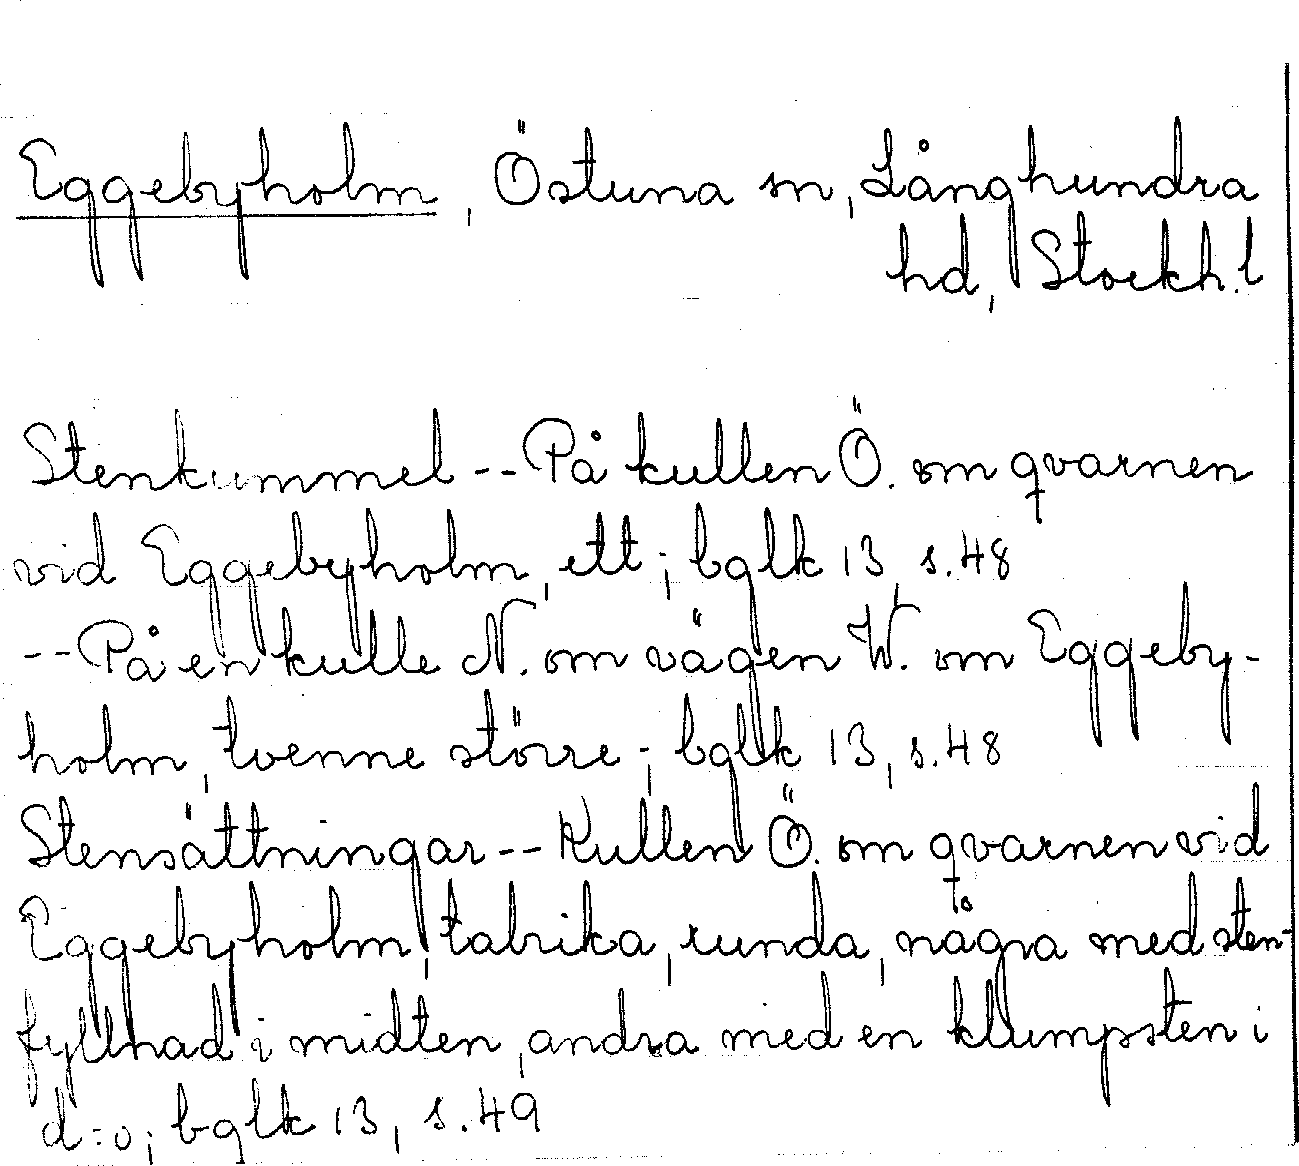 Eggebyholm, Östuna sn, Långhundra
hd, Stockh. l
Stenkummel -- På kullen Ö. om qvarnen
vid Eggebyholm, ett; bglk 13, s. 48
-- På en kulle N. om vägen W. om Eggeby-
holm, tvenne större; bglk 13, s. 48
Stensättningar -- Kullen Ö. om qvarnen vid
Eggebyholm; talrika, runda, några med sten-
fyllnad i midten, andra med en klumpsten i
d:o; bglk 13, s. 49